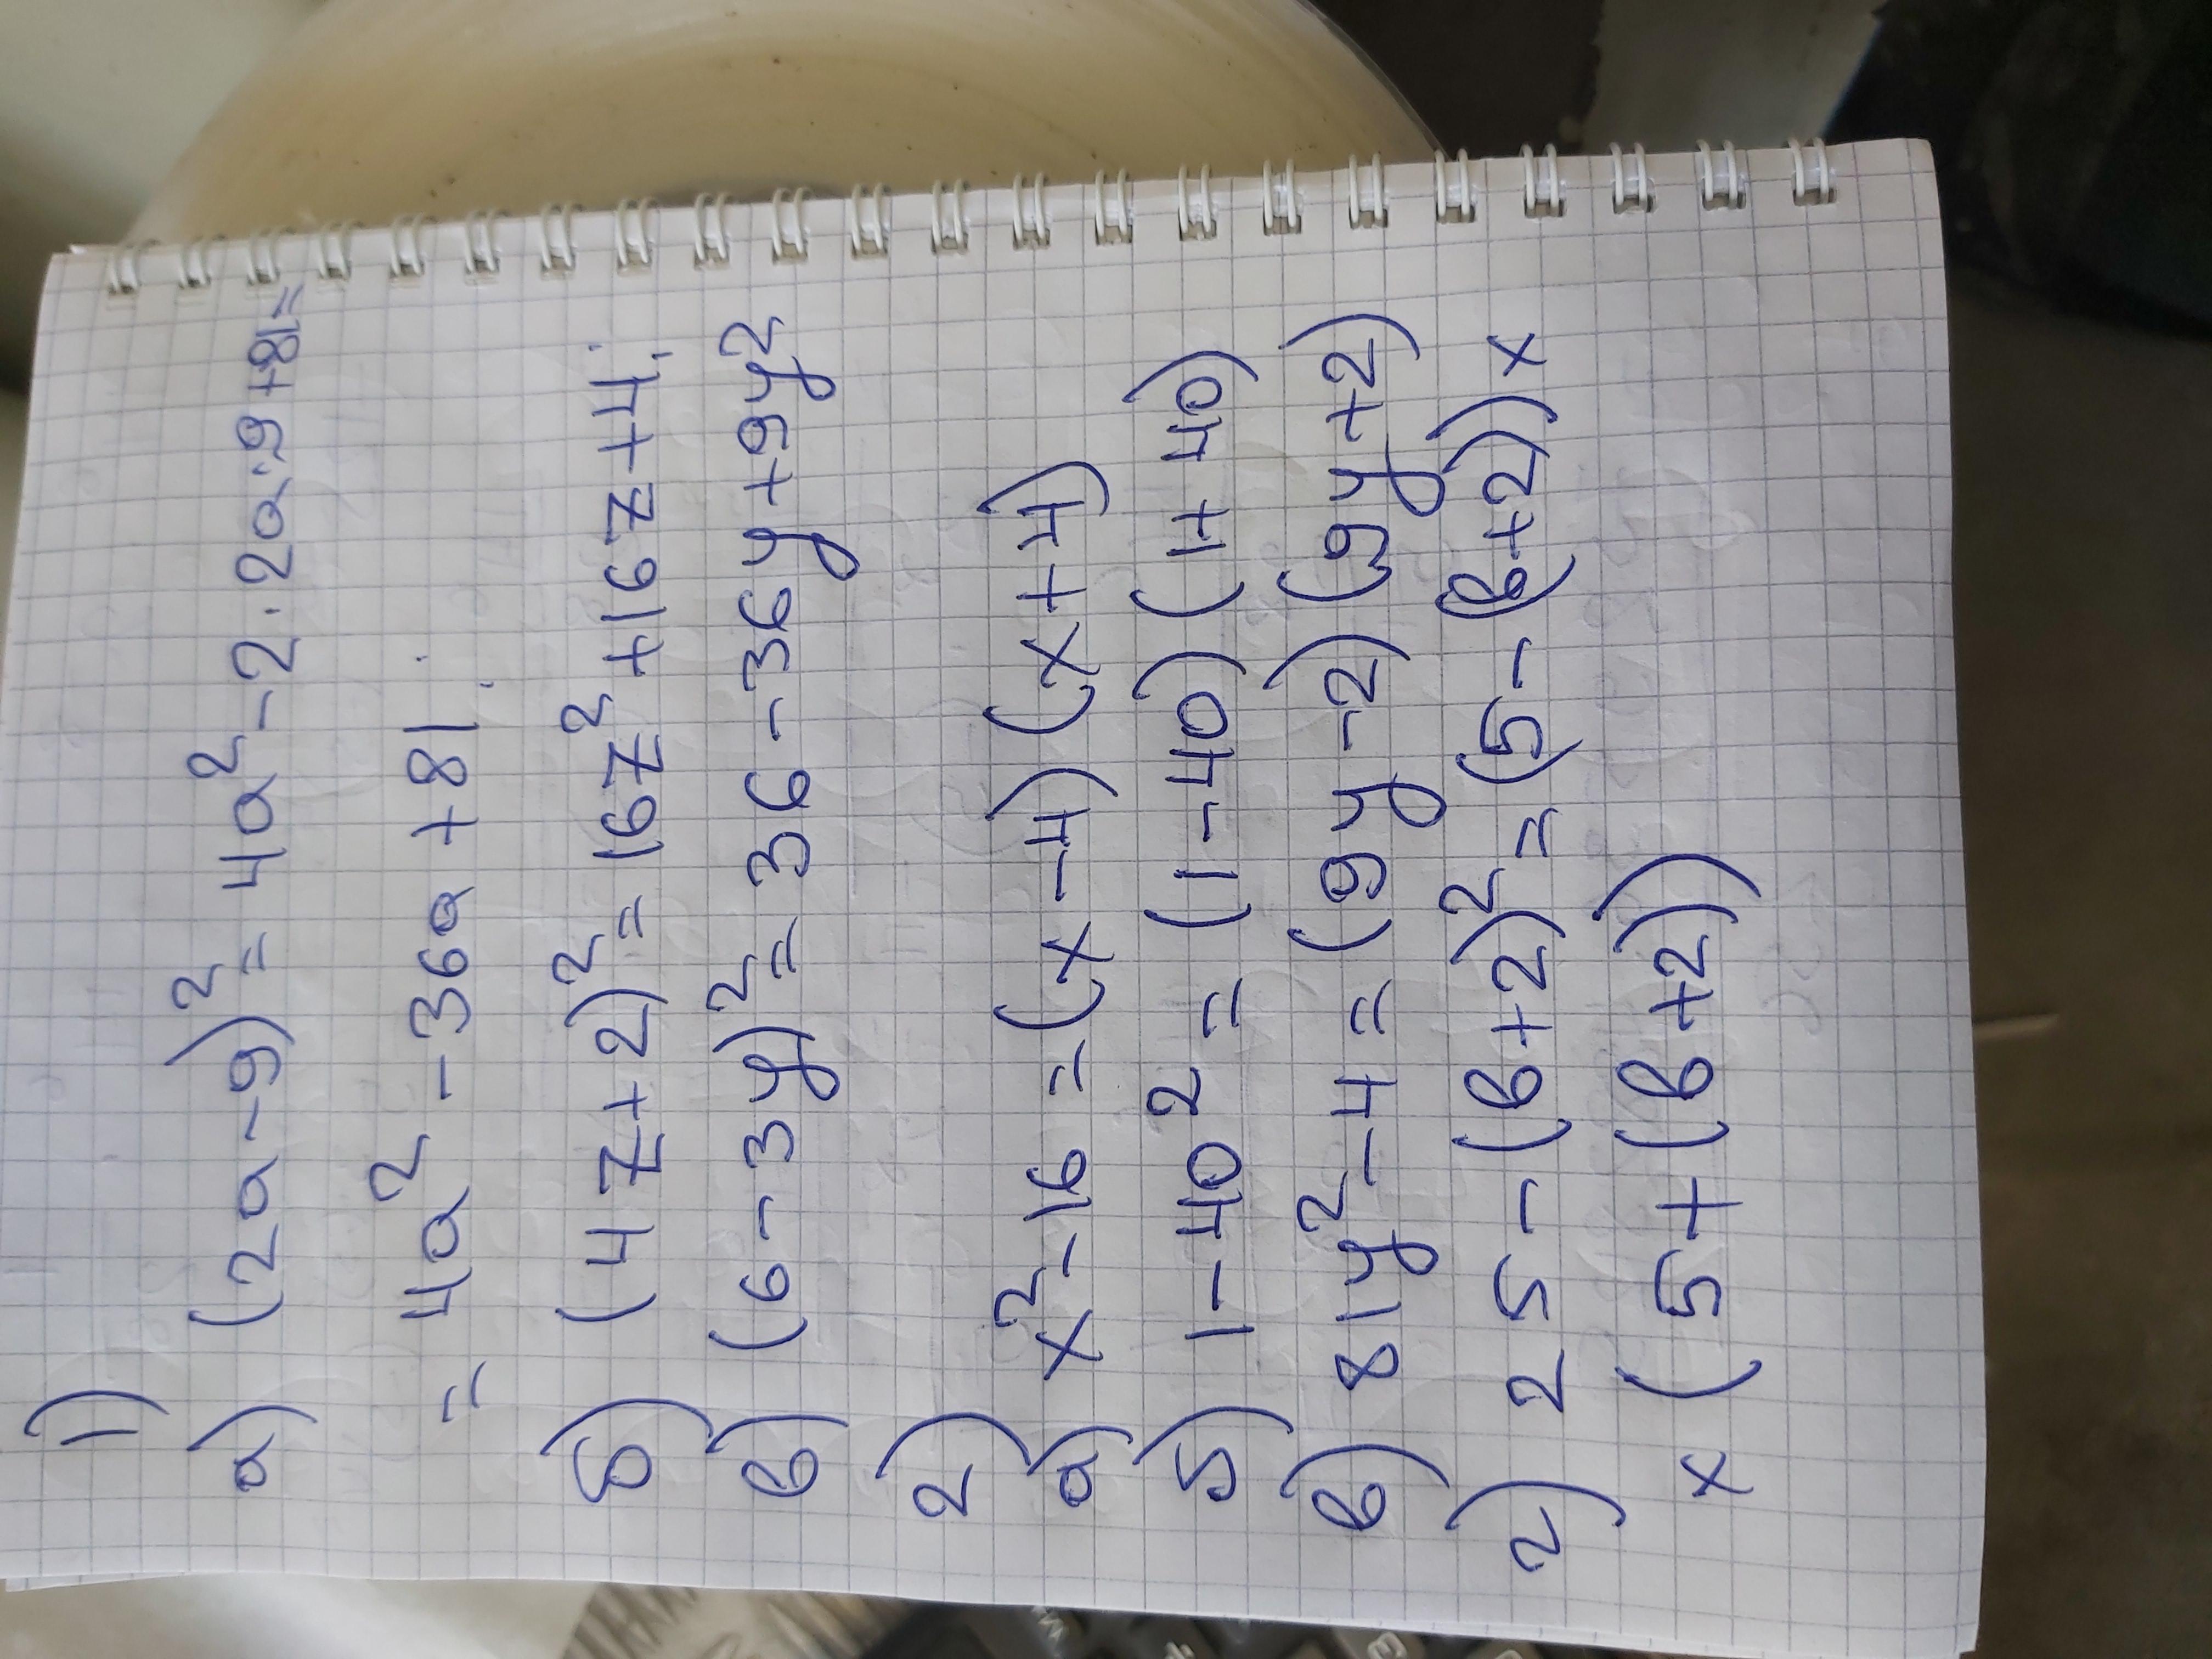 1)
а) (2a-9)² = 4a² - 2·2a·9+81=
= 4a² - 36a + 81;
б) (4z+2)² = 16z² + 16z + 4;
в) (6-3y)² = 36 - 36y + 9y²
2)
а) x² - 16 = (x-4)(x+4)
б) 1 - 40² = (1-40)(1+40)
в) 81y² - 4 = (9y-2)(9y+2)
г) 25 - (b+2)² = (5-(b+2))x
x (5+(b+2))